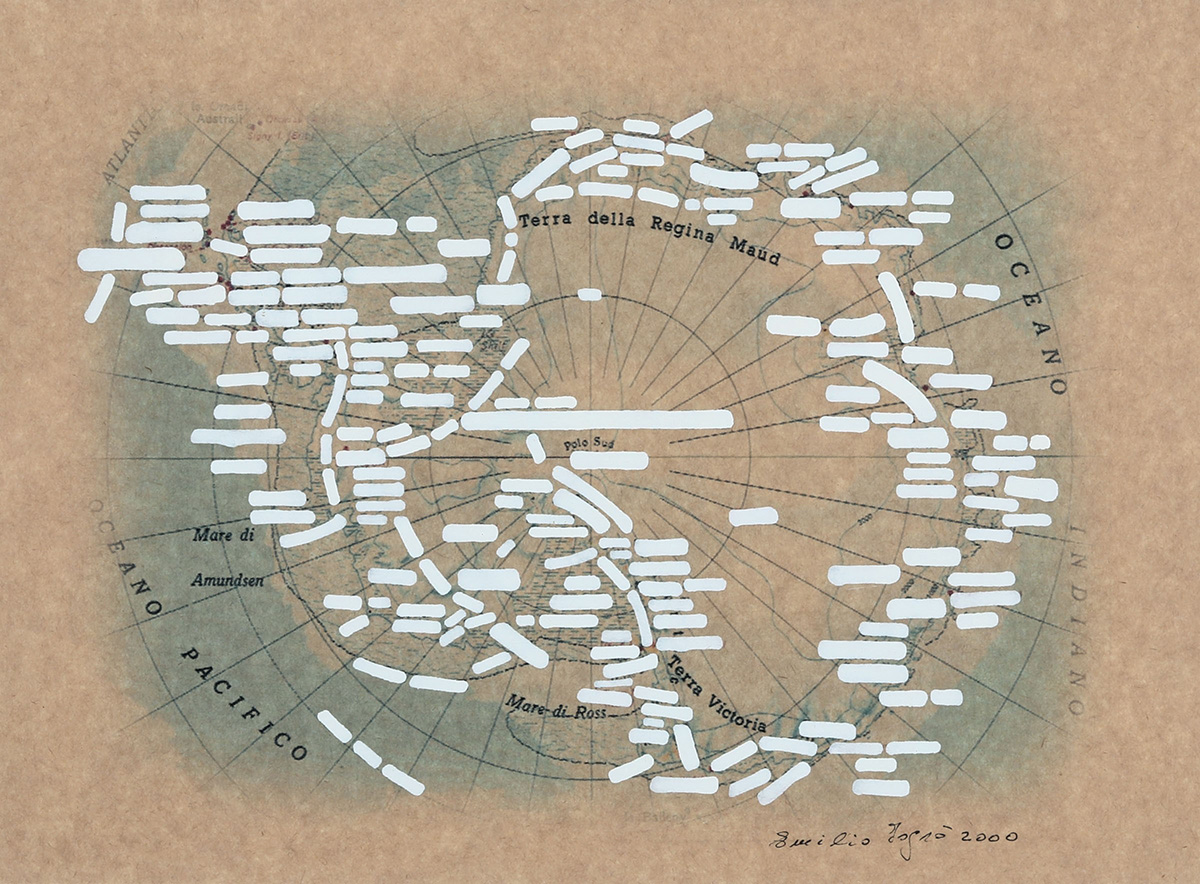 ATLANTI
Terra della Regina Maud
OCEANO
Polo Sud
Mare di
Amundsen
OCEANO
PACIFICO
INDIANO
Terra Victoria
Mare di Ross
2000